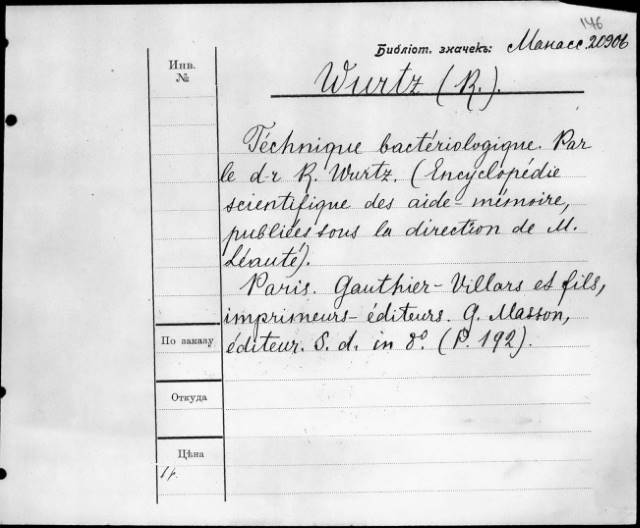 146
Библіот. значекъ: Манасс. 20906
Инв.
№
Wurtz (R.).
Téchnique bactériologique. Par
le d-r R. Wurtz. (Encyclopédie
scientifique des aide-mémoire,
publiées sous la direction de M.
Léauté).
Paris. Gauthier-Villars et fils,
imprimeurs-éditeurs. G. Masson,
éditeur. S. d. in 8º. (P. 192).
По заказу
Откуда
Цѣна
1 р.